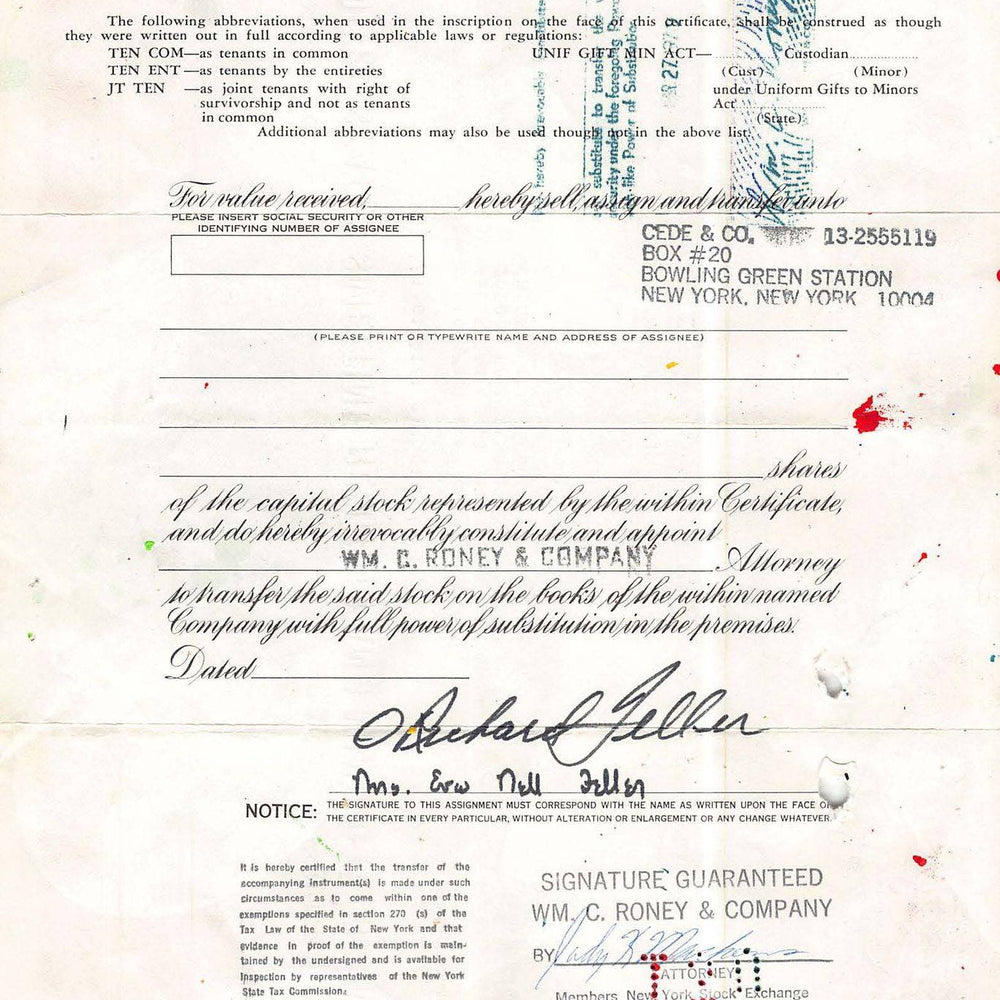 The following abbreviations, when used in the inscription on the face of this certificate, shall be construed as though
they were written out in full according to applicable laws or regulations:
TEN COM—as tenants in common
TEN ENT—as tenants by the entireties
JT TEN —as joint tenants with right of
survivorship and not as tenants
in common
UNIF GIFT MIN ACT— Custodian
(Cust) (Minor)
under Uniform Gifts to Minors
Act
(State)
Additional abbreviations may also be used though not in the above list.
hereby irrevocably
substitute to transfer the
under the foregoing
like Power of Substitution
For value received, hereby sell, assign and transfer unto
PLEASE INSERT SOCIAL SECURITY OR OTHER
IDENTIFYING NUMBER OF ASSIGNEE
CEDE & CO. 13-2555119
BOX #20
BOWLING GREEN STATION
NEW YORK, NEW YORK 10004
(PLEASE PRINT OR TYPEWRITE NAME AND ADDRESS OF ASSIGNEE)
shares
of the capital stock represented by the within Certificate,
and do hereby irrevocably constitute and appoint
WM. C. RONEY & COMPANY Attorney
to transfer the said stock on the books of the within named
Company with full power of substitution in the premises.
Dated
Richard Feller
Mrs. Eva Nell Feller
NOTICE: THE SIGNATURE TO THIS ASSIGNMENT MUST CORRESPOND WITH THE NAME AS WRITTEN UPON THE FACE OF
THE CERTIFICATE IN EVERY PARTICULAR, WITHOUT ALTERATION OR ENLARGEMENT OR ANY CHANGE WHATEVER.
It is hereby certified that the transfer of the
accompanying instrument(s) is made under such
circumstances as to come within one of the
exemptions specified in section 270 (s) of the
Tax Law of the State of New York and that
evidence in proof of the exemption is main-
tained by the undersigned and is available for
inspection by representatives of the New York
State Tax Commission.
SIGNATURE GUARANTEED
WM. C. RONEY & COMPANY
BY
ATTORNEY
Members New York Stock Exchange